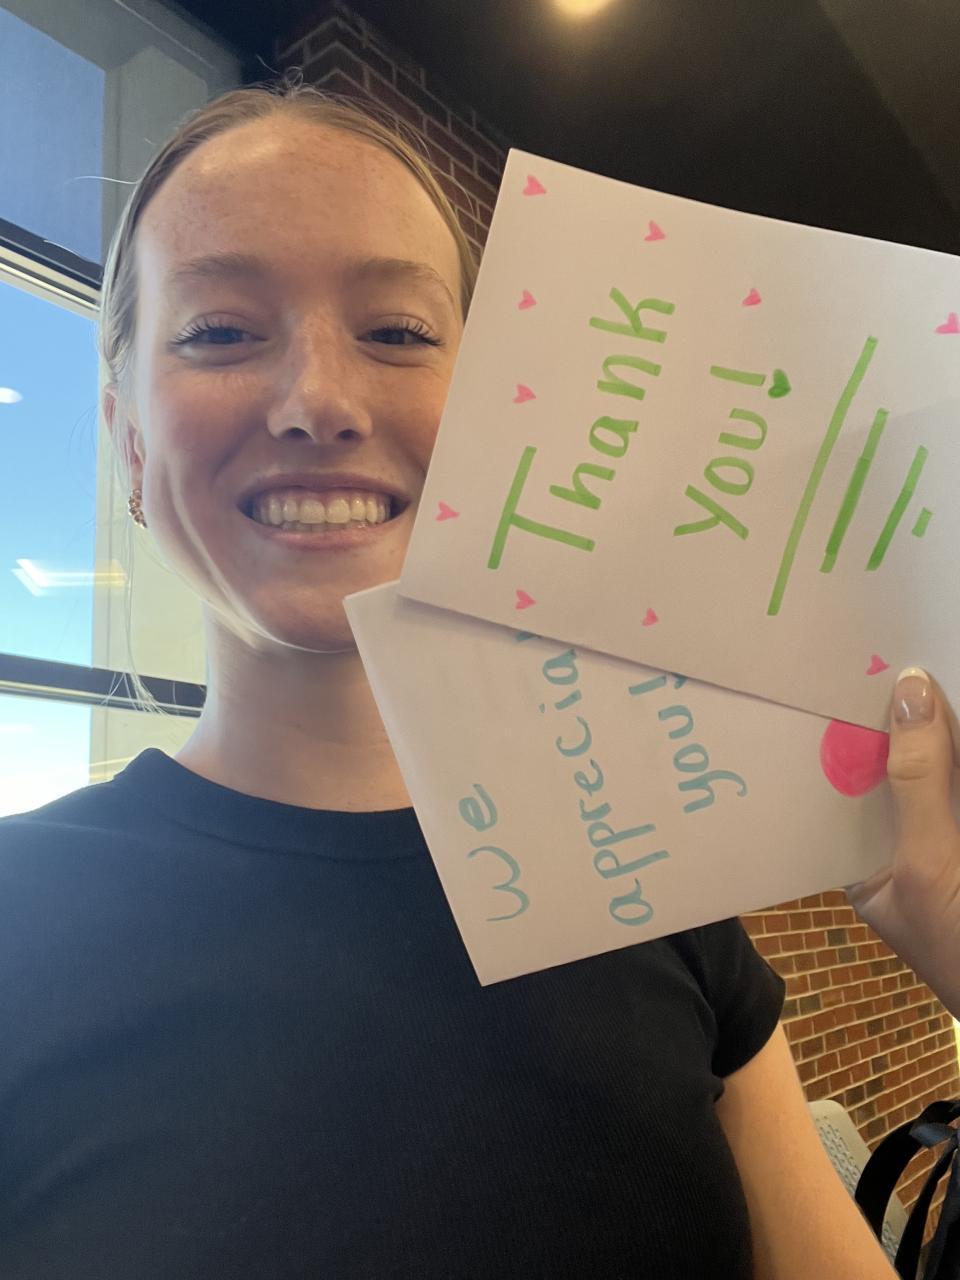 Thank
you!
we
apprecia
you!